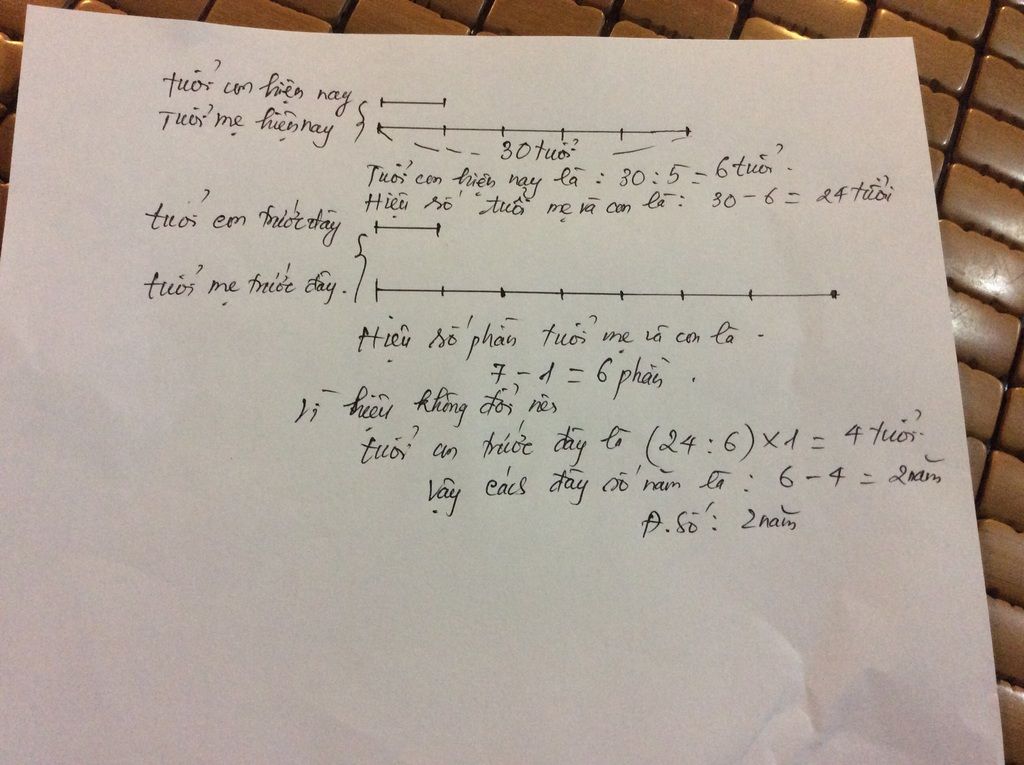 tuổi con hiện nay
Tuổi mẹ hiện nay
30 tuổi
Tuổi con hiện nay là : 30 : 5 = 6 tuổi.
Hiệu số tuổi mẹ và con là : 30 - 6 = 24 tuổi
tuổi con trước đây
tuổi mẹ trước đây.
Hiệu số phần tuổi mẹ và con là -
7 - 1 = 6 phần .
Vì hiệu không đổi nên
tuổi con trước đây là (24 : 6) x 1 = 4 tuổi.
Vậy cách đây số năm là : 6 - 4 = 2 năm
Đ. Số : 2 năm